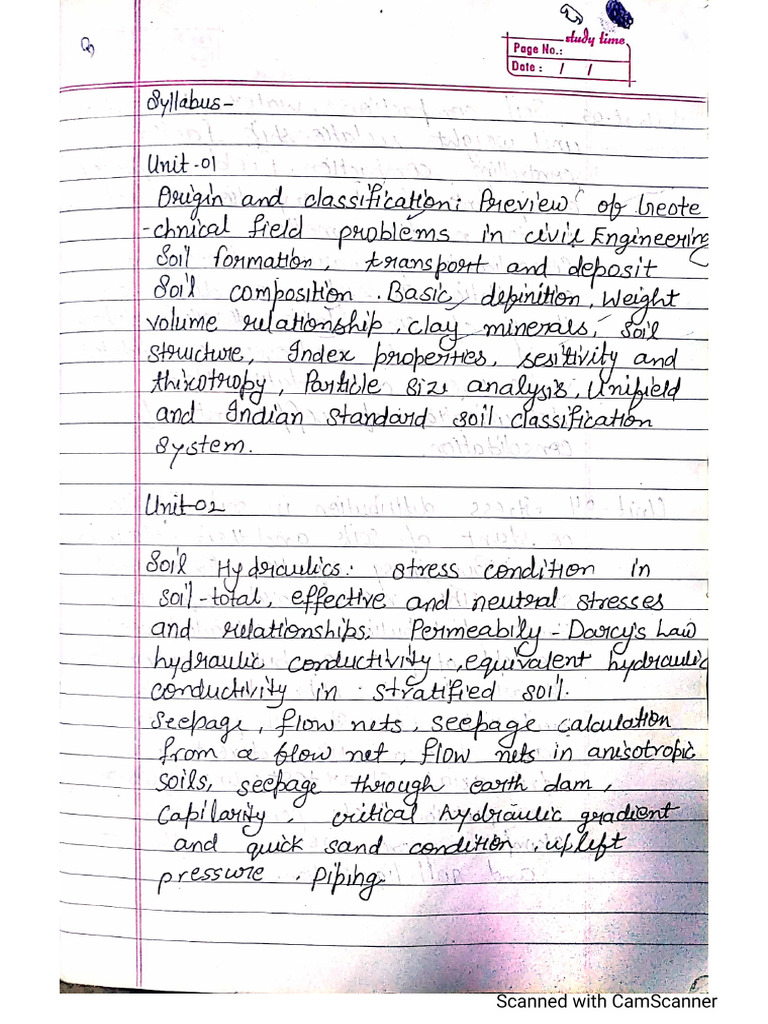 study time
Page No.:
Date : / /
Syllabus-
Unit-01
Origin and classification: Preview of Geote
-chnical field problems in civil Engineering
Soil formation, transport and deposit
Soil composition. Basic definition, Weight
volume relationship, clay minerals, Soil
structure, Index properties, sesitivity and
thixotropy, Particle size analysis, Unifield
and Indian Standard soil classification
System.
Unit-02
Soil Hydraulics: stress condition in
soil-total, effective and neutral stresses
and relationships. Permeabily - Darcy's Law
hydraulic conductivity, equivalent hydraulic
conductivity in stratified soil.
Seepage, flow nets, seepage calculation
from a flow net, flow nets in anisotropic
soils, seepage through earth dam,
Capilarity, critical hydraulic gradient
and quick sand condition, upleft
pressure. Piping.
Scanned with CamScanner